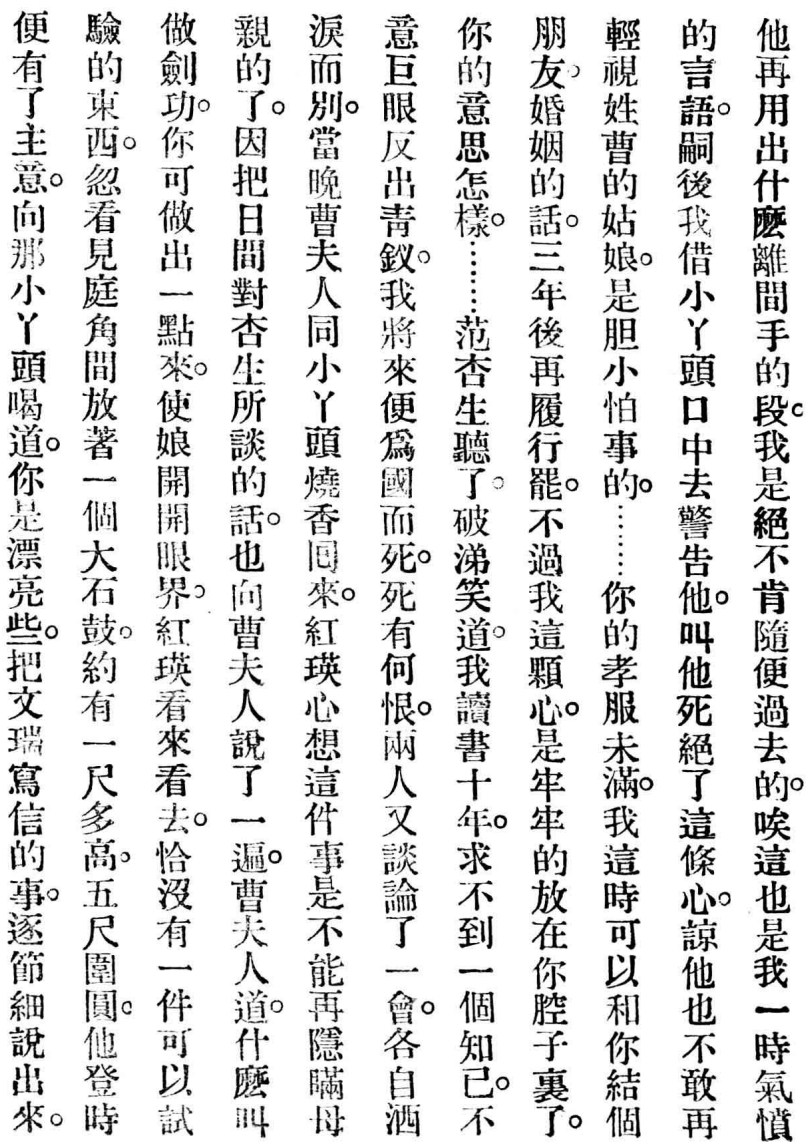 他再用出什麽離間手的段。我是絕不肯隨便過去的。唉這也是我一時氣憤
的言語。嗣後我借小丫頭口中去警告他。叫他死絕了這條心。諒他也不敢再
輕視姓曹的姑娘。是胆小怕事的。⋯⋯你的孝服未滿。我這時可以和你結個
朋友。婚姻的話。三年後再履行罷。不過我這顆心。是牢牢的放在你腔子裏了。
你的意思怎樣。⋯⋯范杏生聽了。破涕笑道。我讀書十年。求不到一個知己。不
意巨眼反出青釵。我將來便爲國而死。死有何恨。兩人又談論了一會。各自洒
淚而別。當晚曹夫人同小丫頭燒香囘來。紅瑛心想這件事是不能再隱瞞母
親的了。因把日間對杏生所談的話。也向曹夫人說了一遍。曹夫人道。什麽叫
做劍功。你可做出一點來。使娘開開眼界。紅瑛看來看去。恰沒有一件可以試
驗的東西。忽看見庭角間放著一個大石鼓。約有一尺多高。五尺圍圓。他登時
便有了主意。向那小丫頭喝道。你是漂亮些。把文瑞寫信的事。逐節細說出來。